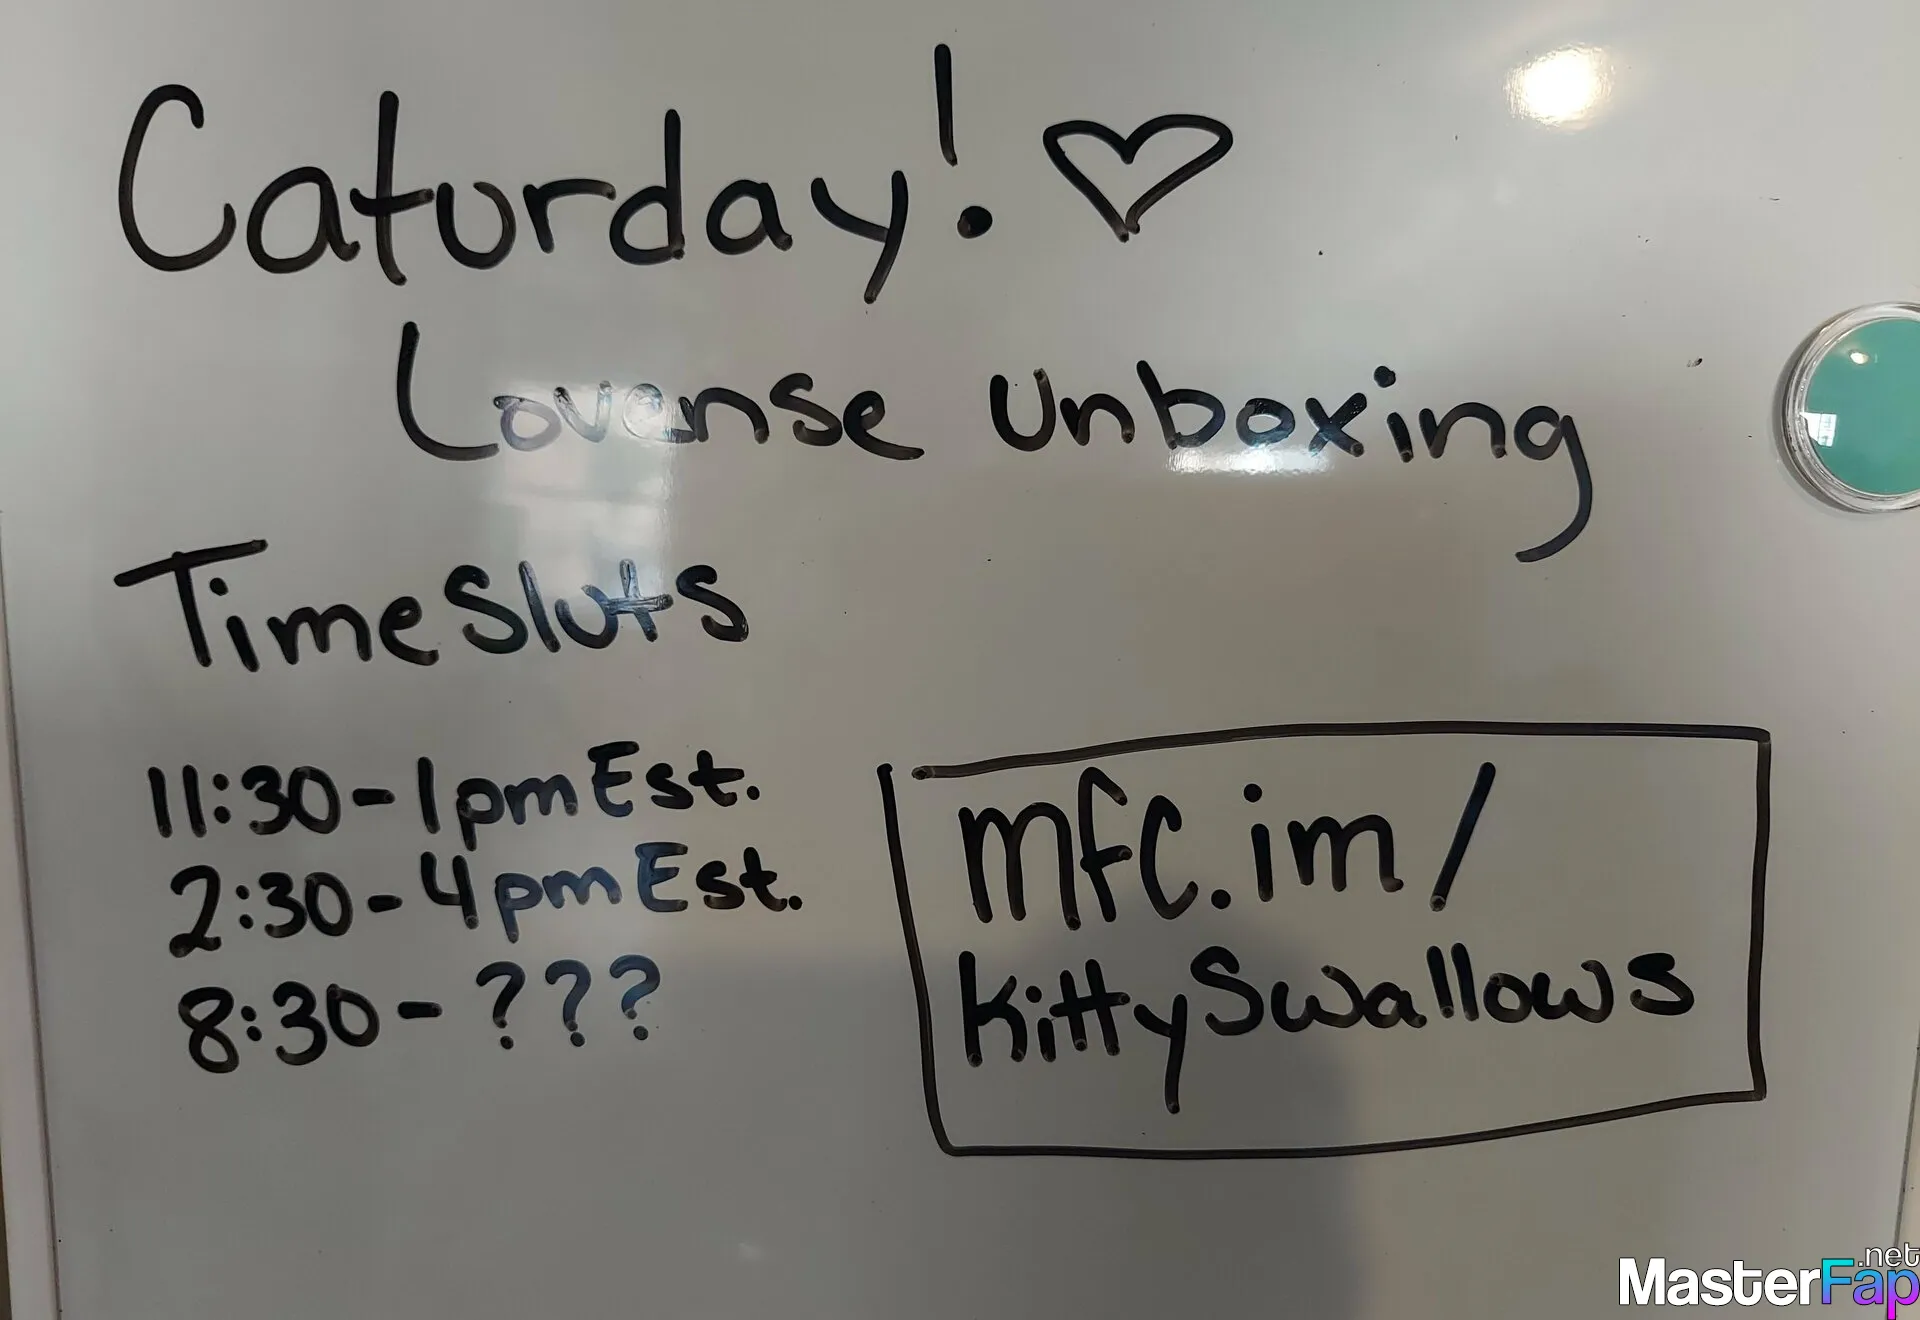 Caturday! ♡
Lovense Unboxing
Time Sluts
11:30-1pm Est.
2:30-4pm Est.
8:30-???
mfc.im/
KittySwallows
MasterFap.net